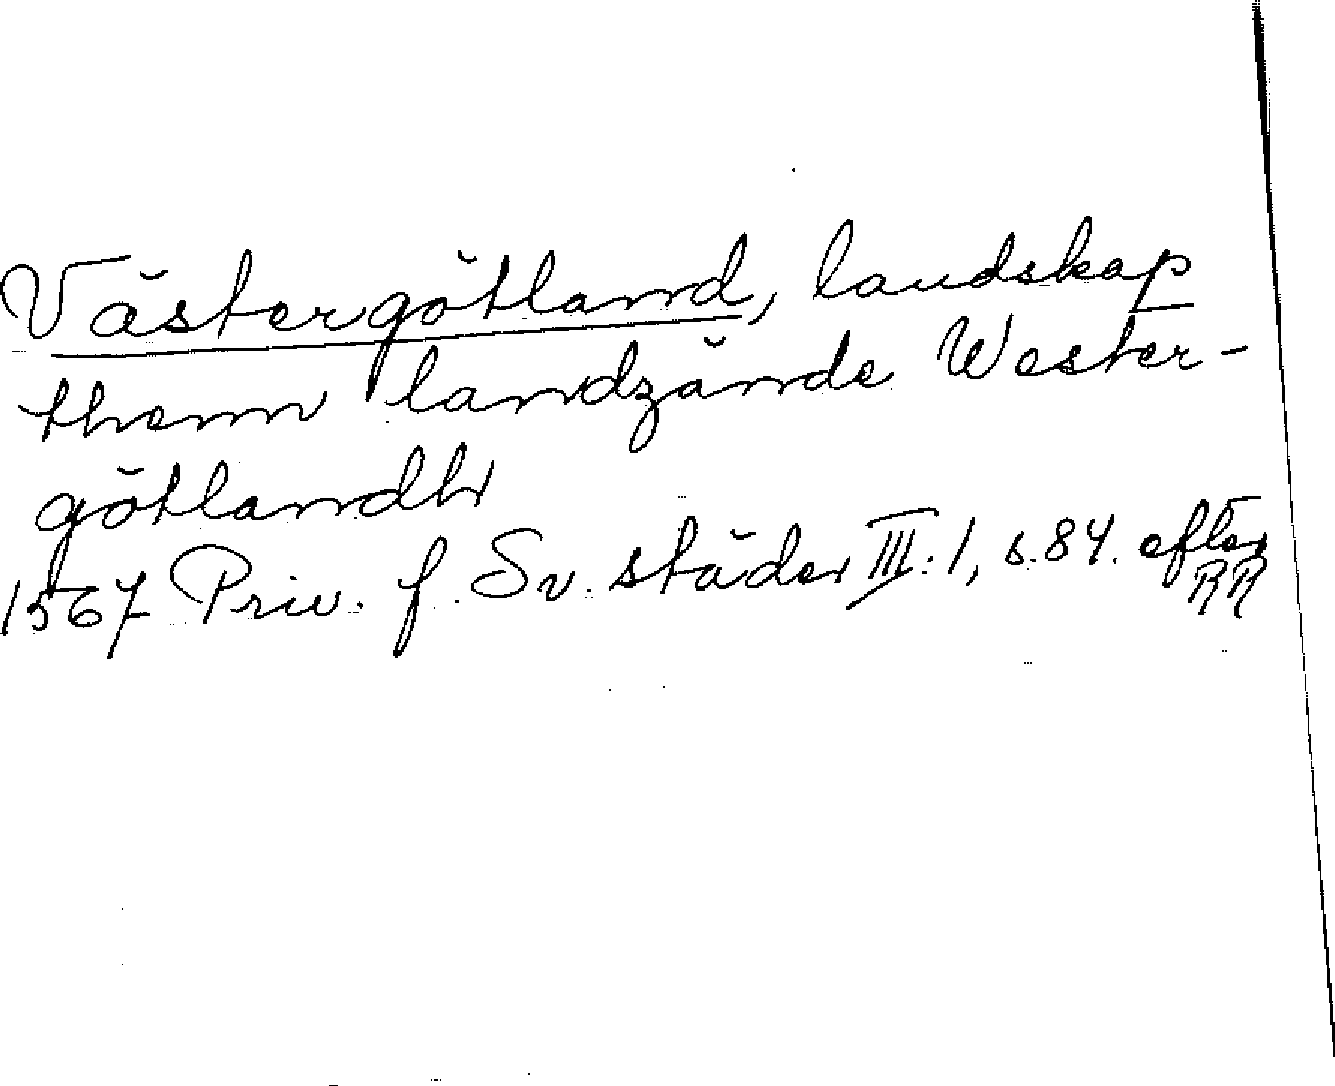 Västergötland, landskap
thenn landzände Wester-
götlandh
1567 Priv. f. Sv. städer III:1, s. 84. efter
RR